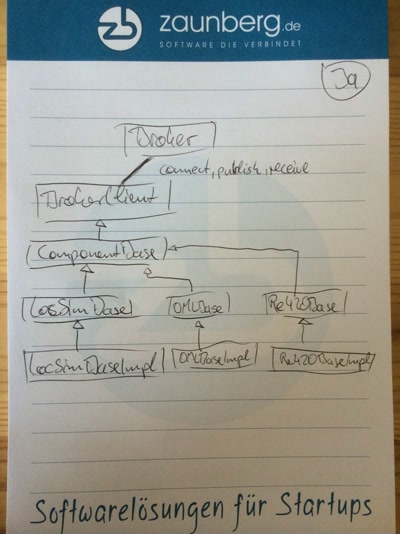 zb zaunberg.de
SOFTWARE DIE VERBINDET
Ja
Broker
connect, publish, receive
BrokerClient
ComponentBase
LocSimBase OMLBase Re420Base
LocSimBaseImpl OMLBaseImpl Re420BaseImpl
Softwarelösungen für Startups